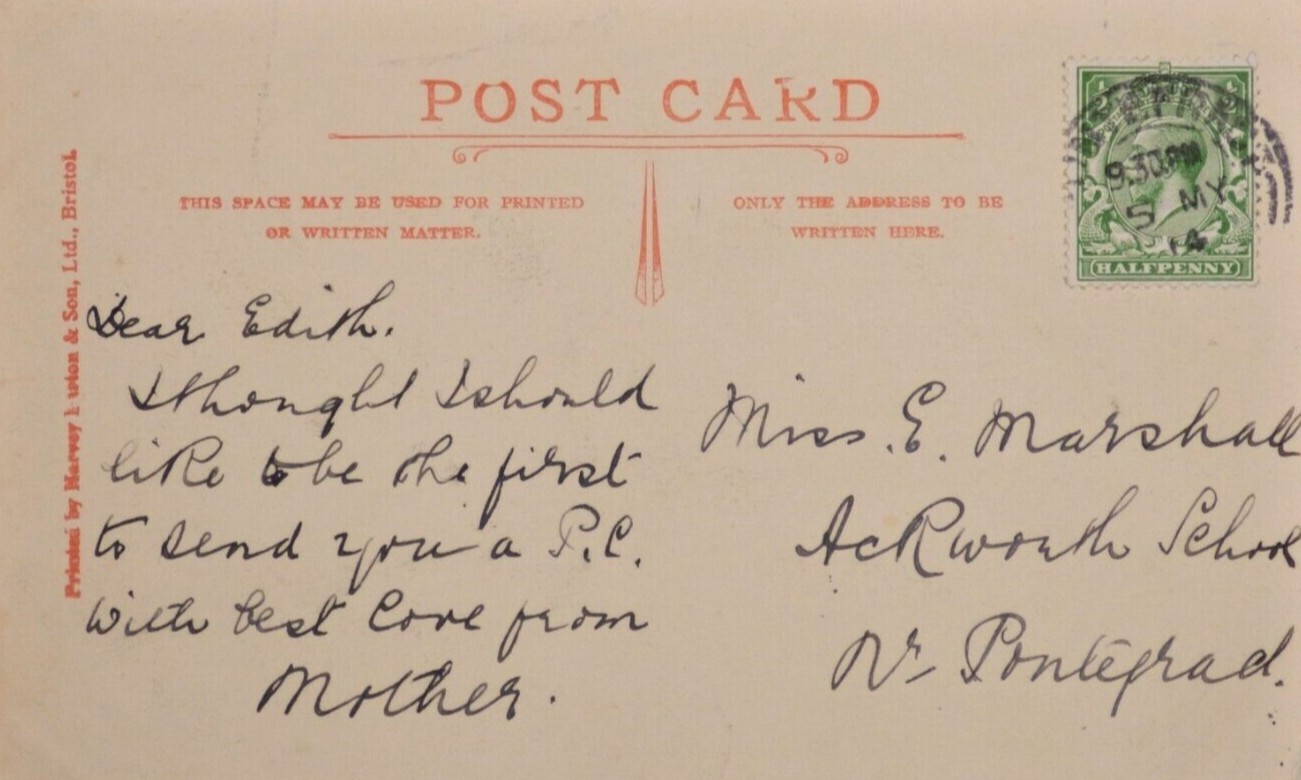 POST CARD
THIS SPACE MAY BE USED FOR PRINTED
OR WRITTEN MATTER.
ONLY THE ADDRESS TO BE
WRITTEN HERE.
Printed by Harvey Barton & Son, Ltd., Bristol.
HALFPENNY
9.30PM
5 MY
14
Dear Edith.
I thought I should
like to be the first
to send you a P.C.
With best love from
Mother.
Miss. E. Marshall
Ackworth School
Nr Pontegrad.